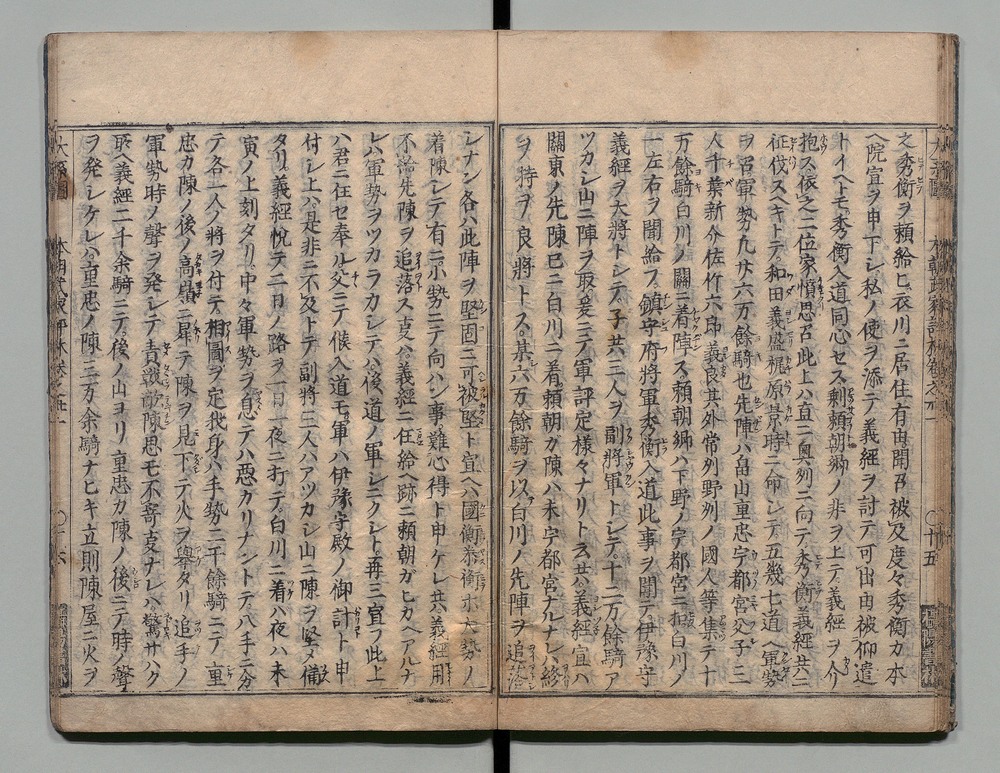 之秀衡ヲ頼給ヒ衣川ニ居住有由聞及被及度々秀衡カ本
ヘ院宣ヲ申下シ私ノ使ヲ添テ義経ヲ討テ可出由被仰遣
トイヘトモ秀衡入道同心セス剰頼朝卿ノ非ヲ上テ義経ヲ介
抱ス依之二位家憤思召此上ハ直ニ奥列ニ向テ秀衡義経共ニ
征伐スヘキトテ和田義盛梶原景時ニ命シテ五幾七道ノ軍勢
ヲ召軍勢九十六万余騎也先陣ハ畠山重忠宇都宮父子三
人千葉新介佐竹六郎義良其外常列野列ノ國人等集テ十
万餘騎白川ノ關ニ着陣ス頼朝卿ハ下野ノ宇都宮ニ扣白川ノ
左右ヲ聞給フ鎮守府將軍秀衡入道此事ヲ聞テ伊豫守
義經ヲ大將トシテ子共二人ヲ副將軍トシテ十二万餘騎ア
ツカシ山ニ陣ヲ取爰ニテ軍評定様々ナリト云共義經宣ハ
關東ノ先陳已ニ白川ニ着頼朝カ陳ハ未宇都宮ナルナレハ終
ヲ持ヲ良將トス某六万餘騎ヲ以白川ノ先陣ヲ追落
シナン各ハ此陣ヲ堅固ニ可被堅ト宣ヘハ國衡泰衡ホ大勢ノ
着陳シテ有ニ小勢ニテ向ハン事難心得ト申ケレ共義經用
不給先陳ヲ追落ス支ハ義經ニ任給ヘ跡ニ頼朝カヒカヘアルナ
レハ軍勢ヲツカラカシテハ後ノ軍シニクシト再三宣フ此上
ハ君ニ任セ奉ル父ニテ候入道モ軍ハ伊豫守殿ノ御計ト申
付シ上ハ是非ニ不及トテ副將二人ハアツカシ山ニ陳ヲ堅メ備
タリ義經悦テ二日ノ路ヲ一日一夜ニ打テ白川ニ着ハ夜ハ未
寅ノ上刻タリ中々軍勢ヲ息テハ悪カリナントテ八手ニ分
テ各一人ノ將ヲ付テ相圖ヲ定我身ハ手勢二千餘騎ニテ重
忠カ陳ノ後ノ高嶺ニ昇テ陳ヲ見下シテ火ヲ擧タリ追手ノ
軍勢時ノ聲ヲ発シテ責戦敵陳思モ不寄支ナレハ驚サハク
所ヘ義經二千余騎ニテ後ノ山ヨリ重忠カ陳ノ後ニテ時ノ聲
ヲ発シケレハ重忠ノ陳ニ三万余騎ナヒキ立則陳屋ニ火ヲ